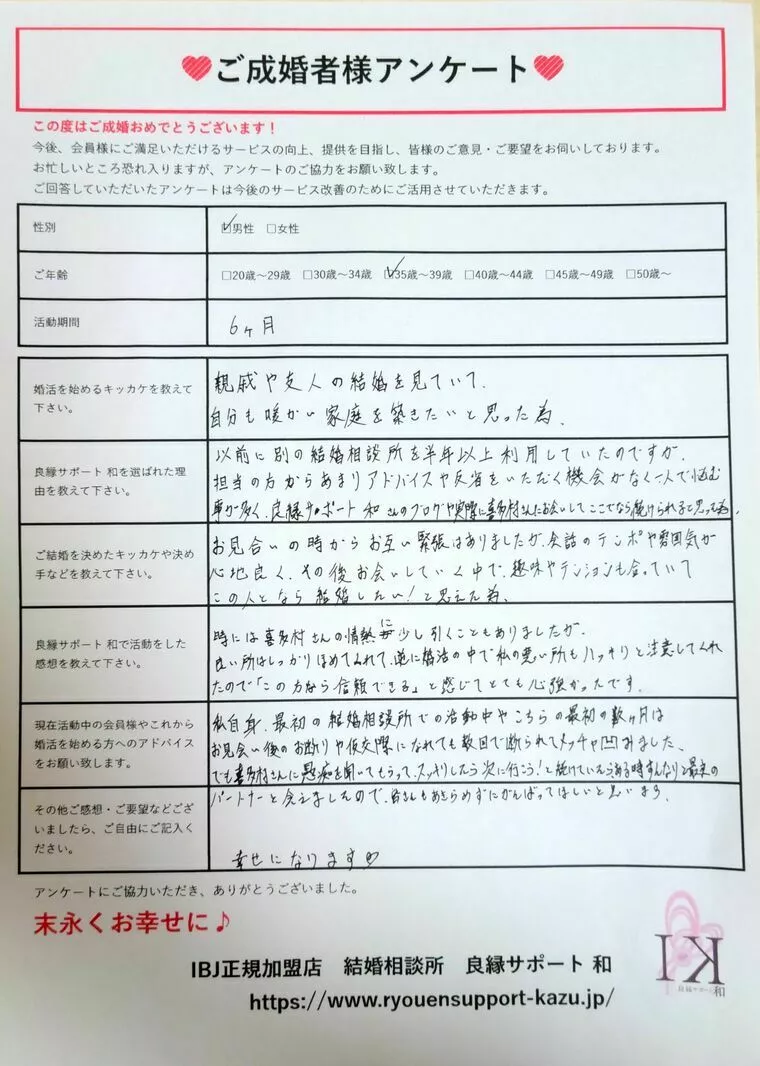 ご成婚者様アンケート
この度はご成婚おめでとうございます！
今後、会員様にご満足いただけるサービスの向上、提供を目指し、皆様のご意見・ご要望をお伺いしております。
お忙しいところ恐れ入りますが、アンケートのご協力をお願い致します。
ご回答していただいたアンケートは今後のサービス改善のためにご活用させていただきます。
性別
☑男性 □女性
ご年齢
□20歳～29歳 □30歳～34歳 ☑35歳～39歳 □40歳～44歳 □45歳～49歳 □50歳～
活動期間
6ヶ月
婚活を始めるキッカケを教えて
下さい。
親戚や友人の結婚を見ていて、
自分も暖かい家庭を築きたいと思った為、
良縁サポート 和を選ばれた理
由を教えて下さい。
以前に別の結婚相談所を半年以上利用していたのですが、
担当の方からあまりアドバイスや反省をいただく機会がなく一人で悩む
事が多く、良縁サポート 和さんのブログや実際に喜多村さんにお会いしてここでなら続けられると思った為、
ご結婚を決めたキッカケや決め
手などを教えて下さい。
お見合いの時からお互い緊張はありましたが、会話のテンポや雰囲気が
心地良く、その後お会いしていく中で、趣味やテンションも合っていて
この人となら結婚したい！と思えた為、
良縁サポート 和で活動をした
感想を教えて下さい。
時には喜多村さんの情熱に少し引くこともありましたが、
良い所はしっかりほめてくれて、逆に婚活の中で私の悪い所もハッキリと注意してくれ
たので「この方なら信頼できる」と感じてとても心強かったです。
現在活動中の会員様やこれから
婚活を始める方へのアドバイス
をお願い致します。
私自身、最初の結婚相談所での活動中やこちらの最初の数ヶ月は
お見合い後のお断りや仮交際になれても数回で断られてメッチャ凹みました、
でも喜多村さんに愚痴を聞いてもらって、スッキリしたら次に行こう！と続けていたらある時すんなりと最高の
パートナーと会えましたので、皆さんもあきらめずにがんばってほしいと思います。
その他ご感想・ご要望などござ
いましたら、ご自由にご記入く
ださい。
幸せになります♡
アンケートにご協力いただき、ありがとうございました。
末永くお幸せに♪
IBJ正規加盟店 結婚相談所 良縁サポート 和
https://www.ryouensupport-kazu.jp/
KI
良縁サポート 和